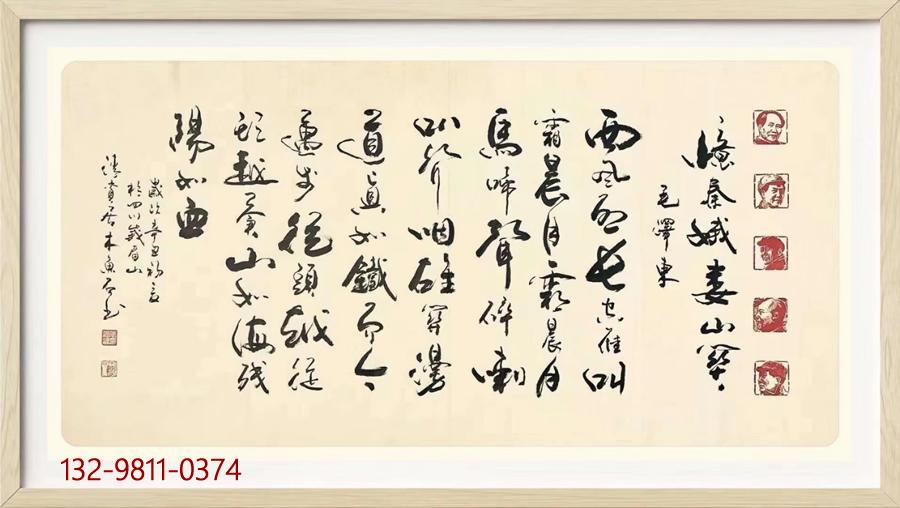 憶秦娥婁山關
毛澤東
西風烈長空雁叫
霜晨月霜晨月
馬蹄聲碎喇
叭聲咽雄關漫
道真如鐵而今
邁步從頭越從
頭越蒼山如海殘
陽如血
歲次辛丑初
於四川峨眉山
居木魚石
132-9811-0374